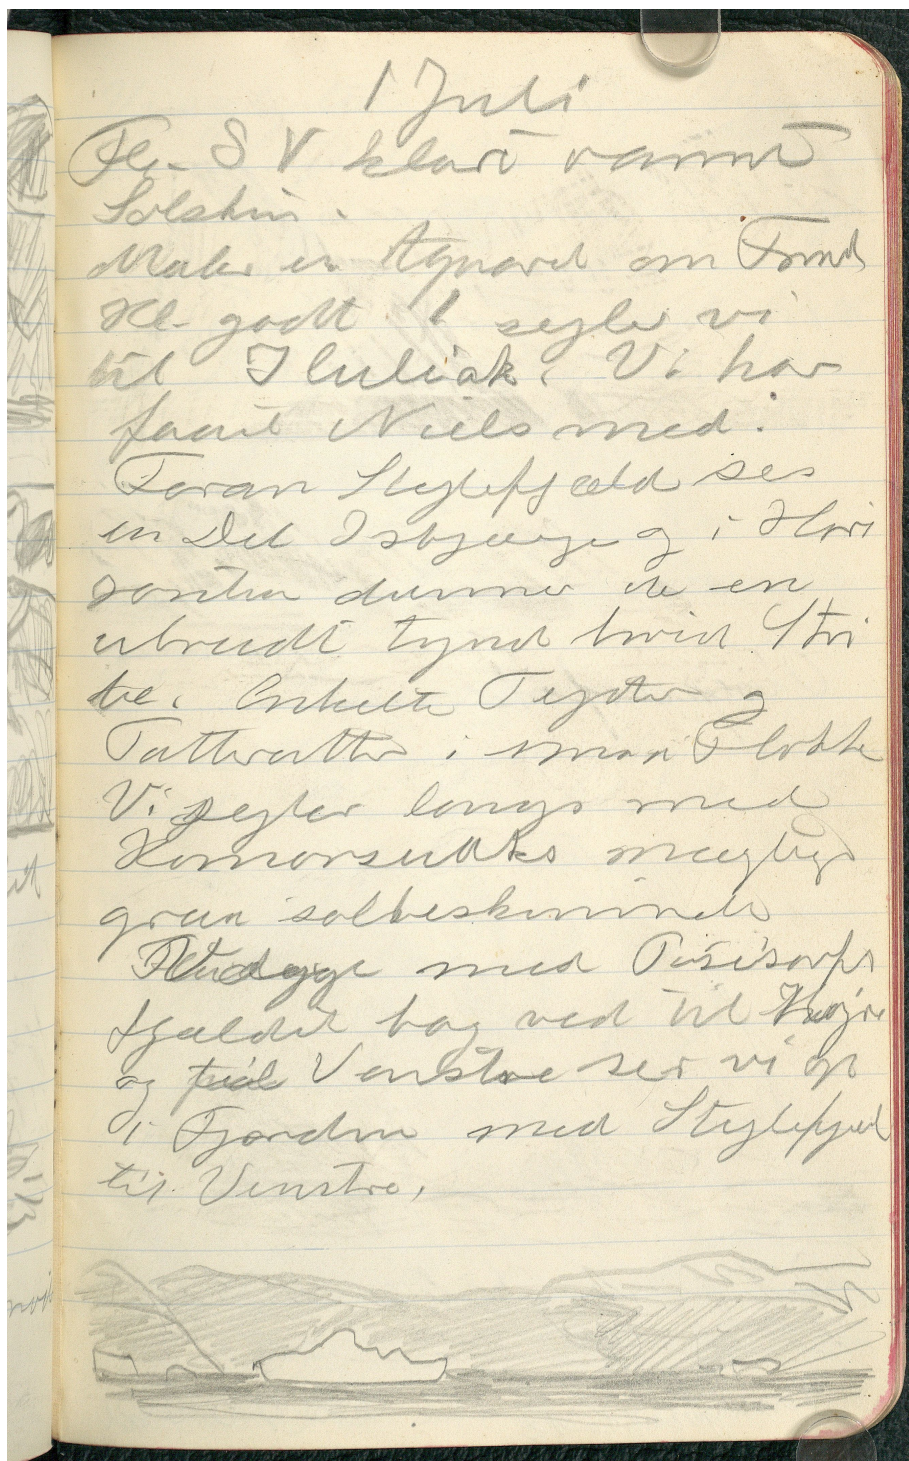 1 Juli
Fl. S V klart varmt
Solskin.
Maler en Aqvarel om Formd
Kl. godt 1 sejler vi
til Iluliak. Vi har
faaet Niels med.
Foran Stejlefjæld ses
en Del Isbjærge og i Hori
sonten danner de en
ubrudt tynd hvid Stri
be. Enkelte Tejster og
Tatteratter i smaa Flokke
Vi sejler langs med
Komorsuaks mægtige
graa solbeskinnede
med
fjældet bag ved til Højre
og Venstre ser vi op
i Fjorden med Stejlefjæld
til Venstre.